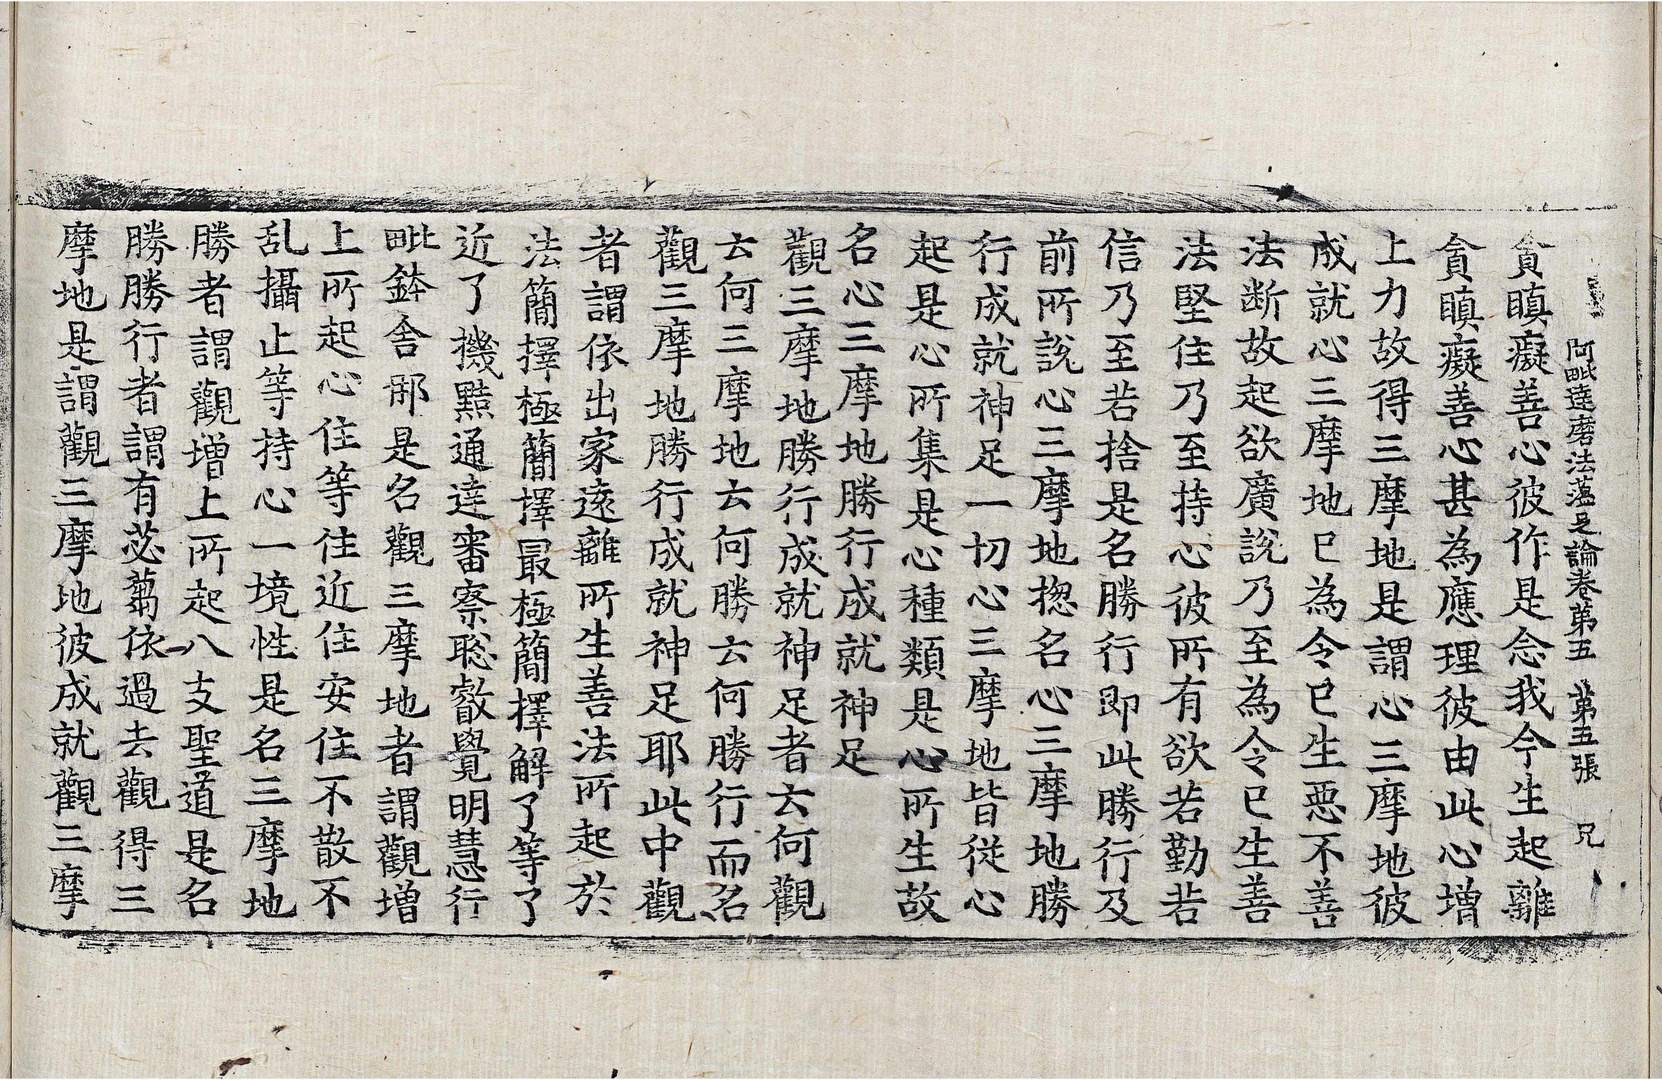 阿毗達磨法蘊足論卷第五 第五張 兄
貪瞋癡善心彼作是念我今生起離
貪瞋癡善心甚為應理彼由此心增
上力故得三摩地是謂心三摩地彼
成就心三摩地已為令已生惡不善
法断故起欲廣說乃至為令已生善
法堅住乃至持心彼所有欲若勤若
信乃至若捨是名勝行即此勝行及
前所說心三摩地揔名心三摩地勝
行成就神足一切心三摩地皆從心
起是心所集是心種類是心所生故
名心三摩地勝行成就神足
觀三摩地勝行成就神足者云何觀
云何三摩地云何勝云何勝行而名
觀三摩地勝行成就神足耶此中觀
者謂依出家遠離所生善法所起於
法簡擇極簡擇最極簡擇解了等了
近了機黠通達審察聡叡覺明慧行
毗鉢舍那是名觀三摩地者謂觀增
上所起心住等住近住安住不散不
乱攝止等持心一境性是名三摩地
勝者謂觀增上所起八支聖道是名
勝勝行者謂有苾蒭依過去觀得三
摩地是謂觀三摩地彼成就觀三摩